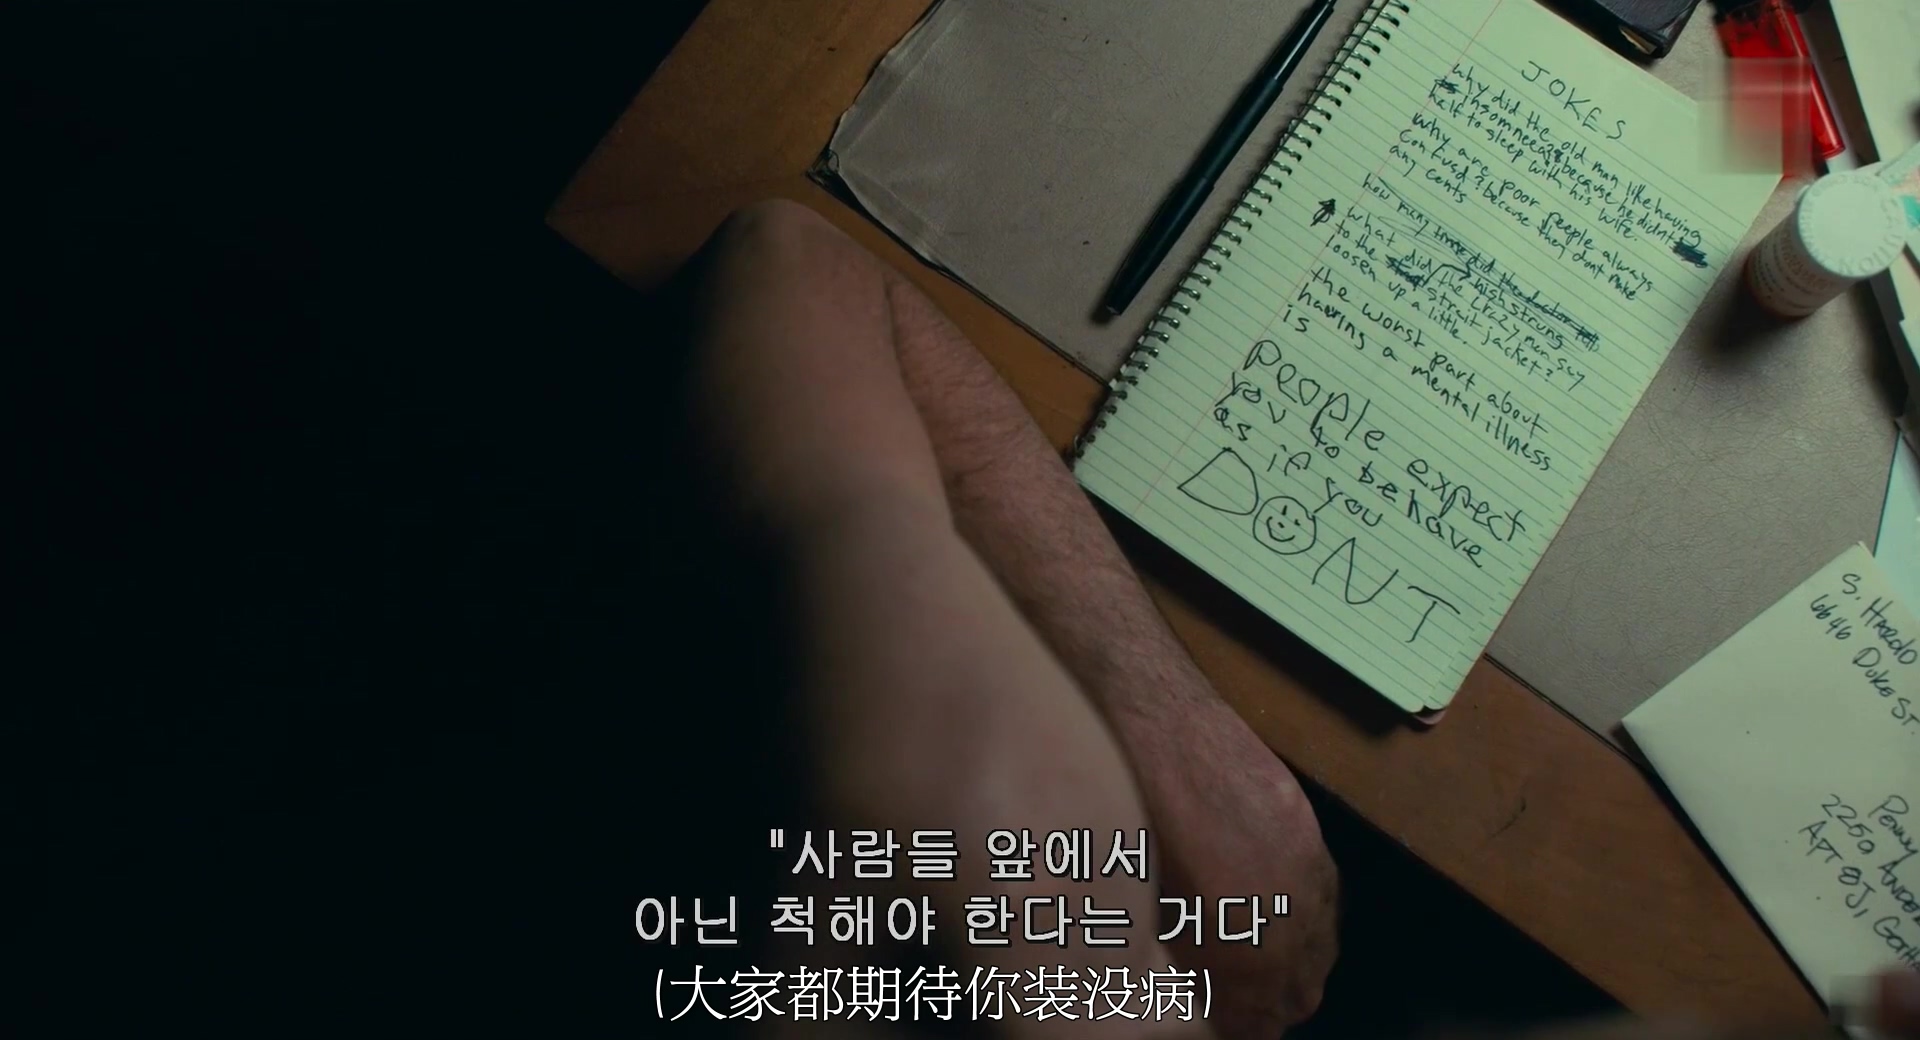 JOKES
why did the old man like having
insomneea? because he didnt
half to sleep with his wife.
why are poor people always
confusd? because they dont make
any cents
how many time did the doctor tell
highstrung
what did the crazy man say
to the strait jacket?
loosen up a little.
the worst part about
having a mental illness
is
people expect
you to behave
as if you
DONT
S. Harold
6646 Duke St.
Penny
APT 8J,
"사람들 앞에서
아닌 척해야 한다는 거다"
(大家都期待你装没病)